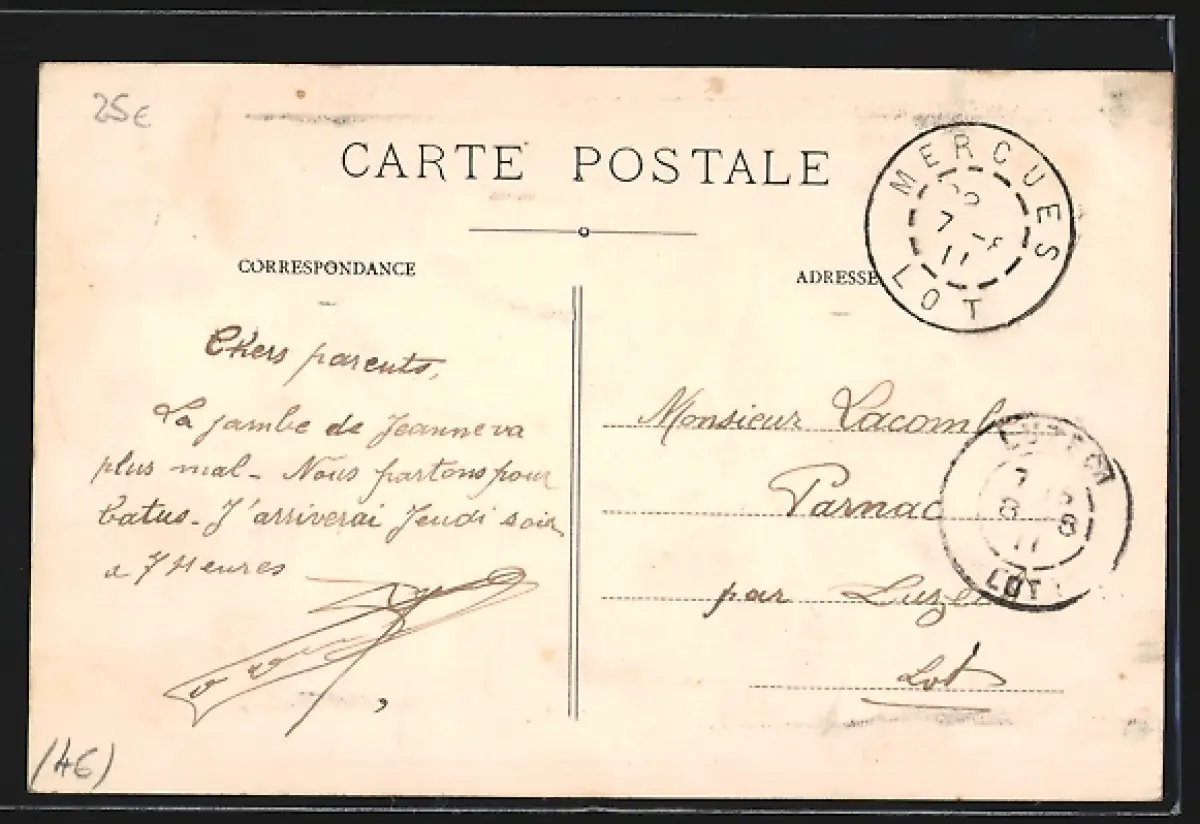 25€
CARTE POSTALE
CORRESPONDANCE
ADRESSE
MERCUES
7 -8
11
LOT
Chers parents,
La jambe de Jeanne va
plus mal - Nous partons pour
Catus - J'arriverai Jeudi soir
a 7 Heures
Monsieur Lacomb
Parnac
par Luzec
Lot
7
8 8
11
LOT
(46)